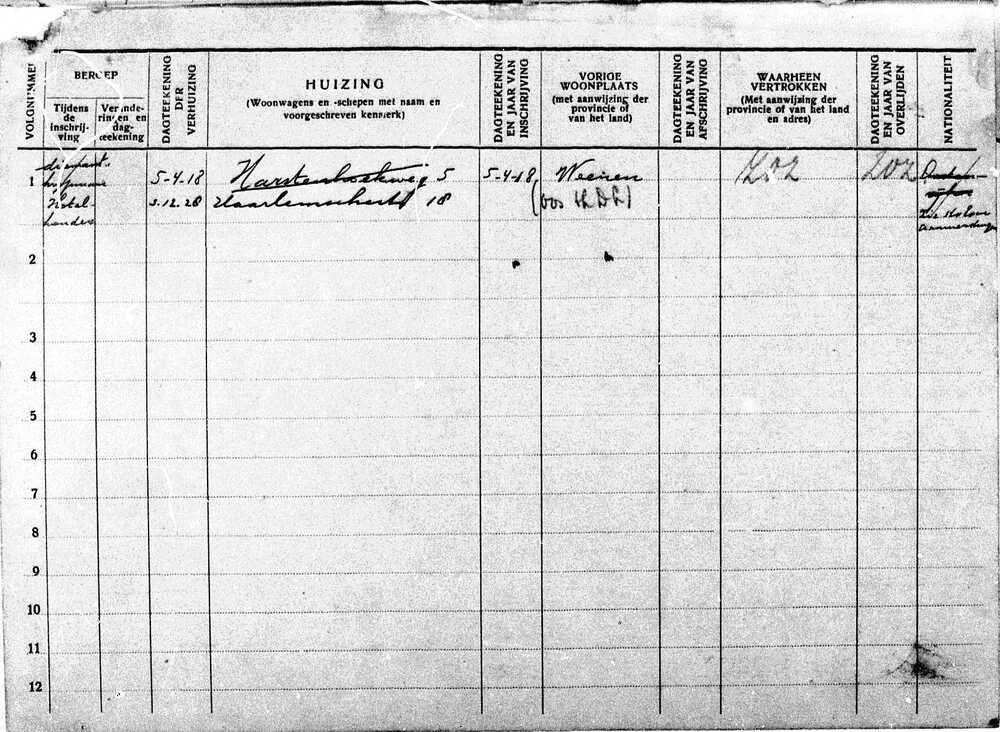 VOLGNUMMER
BEROEP
Tijdens
de
inschrij-
ving
Verande-
ringen en
dag-
teekening
DAGTEEKENING
DER
VERHUIZING
HUIZING
(Woonwagens en -schepen met naam en
voorgeschreven kenmerk)
DAGTEEKENING
EN JAAR VAN
INSCHRIJVING
VORIGE
WOONPLAATS
(met aanwijzing der
provincie of
van het land)
DAGTEEKENING
EN JAAR VAN
AFSCHRIJVING
WAARHEEN
VERTROKKEN
(Met aanwijzing der
provincie of van het land
en adres)
DAGTEEKENING
EN JAAR VAN
OVERLIJDEN
NATIONALITEIT
1 5-4-18 5 5-4-18 Weenen
Hotel- 3.12.28 18
houder
Zie Kolom
Aanmerkingen
2
3
4
5
6
7
8
9
10
11
12